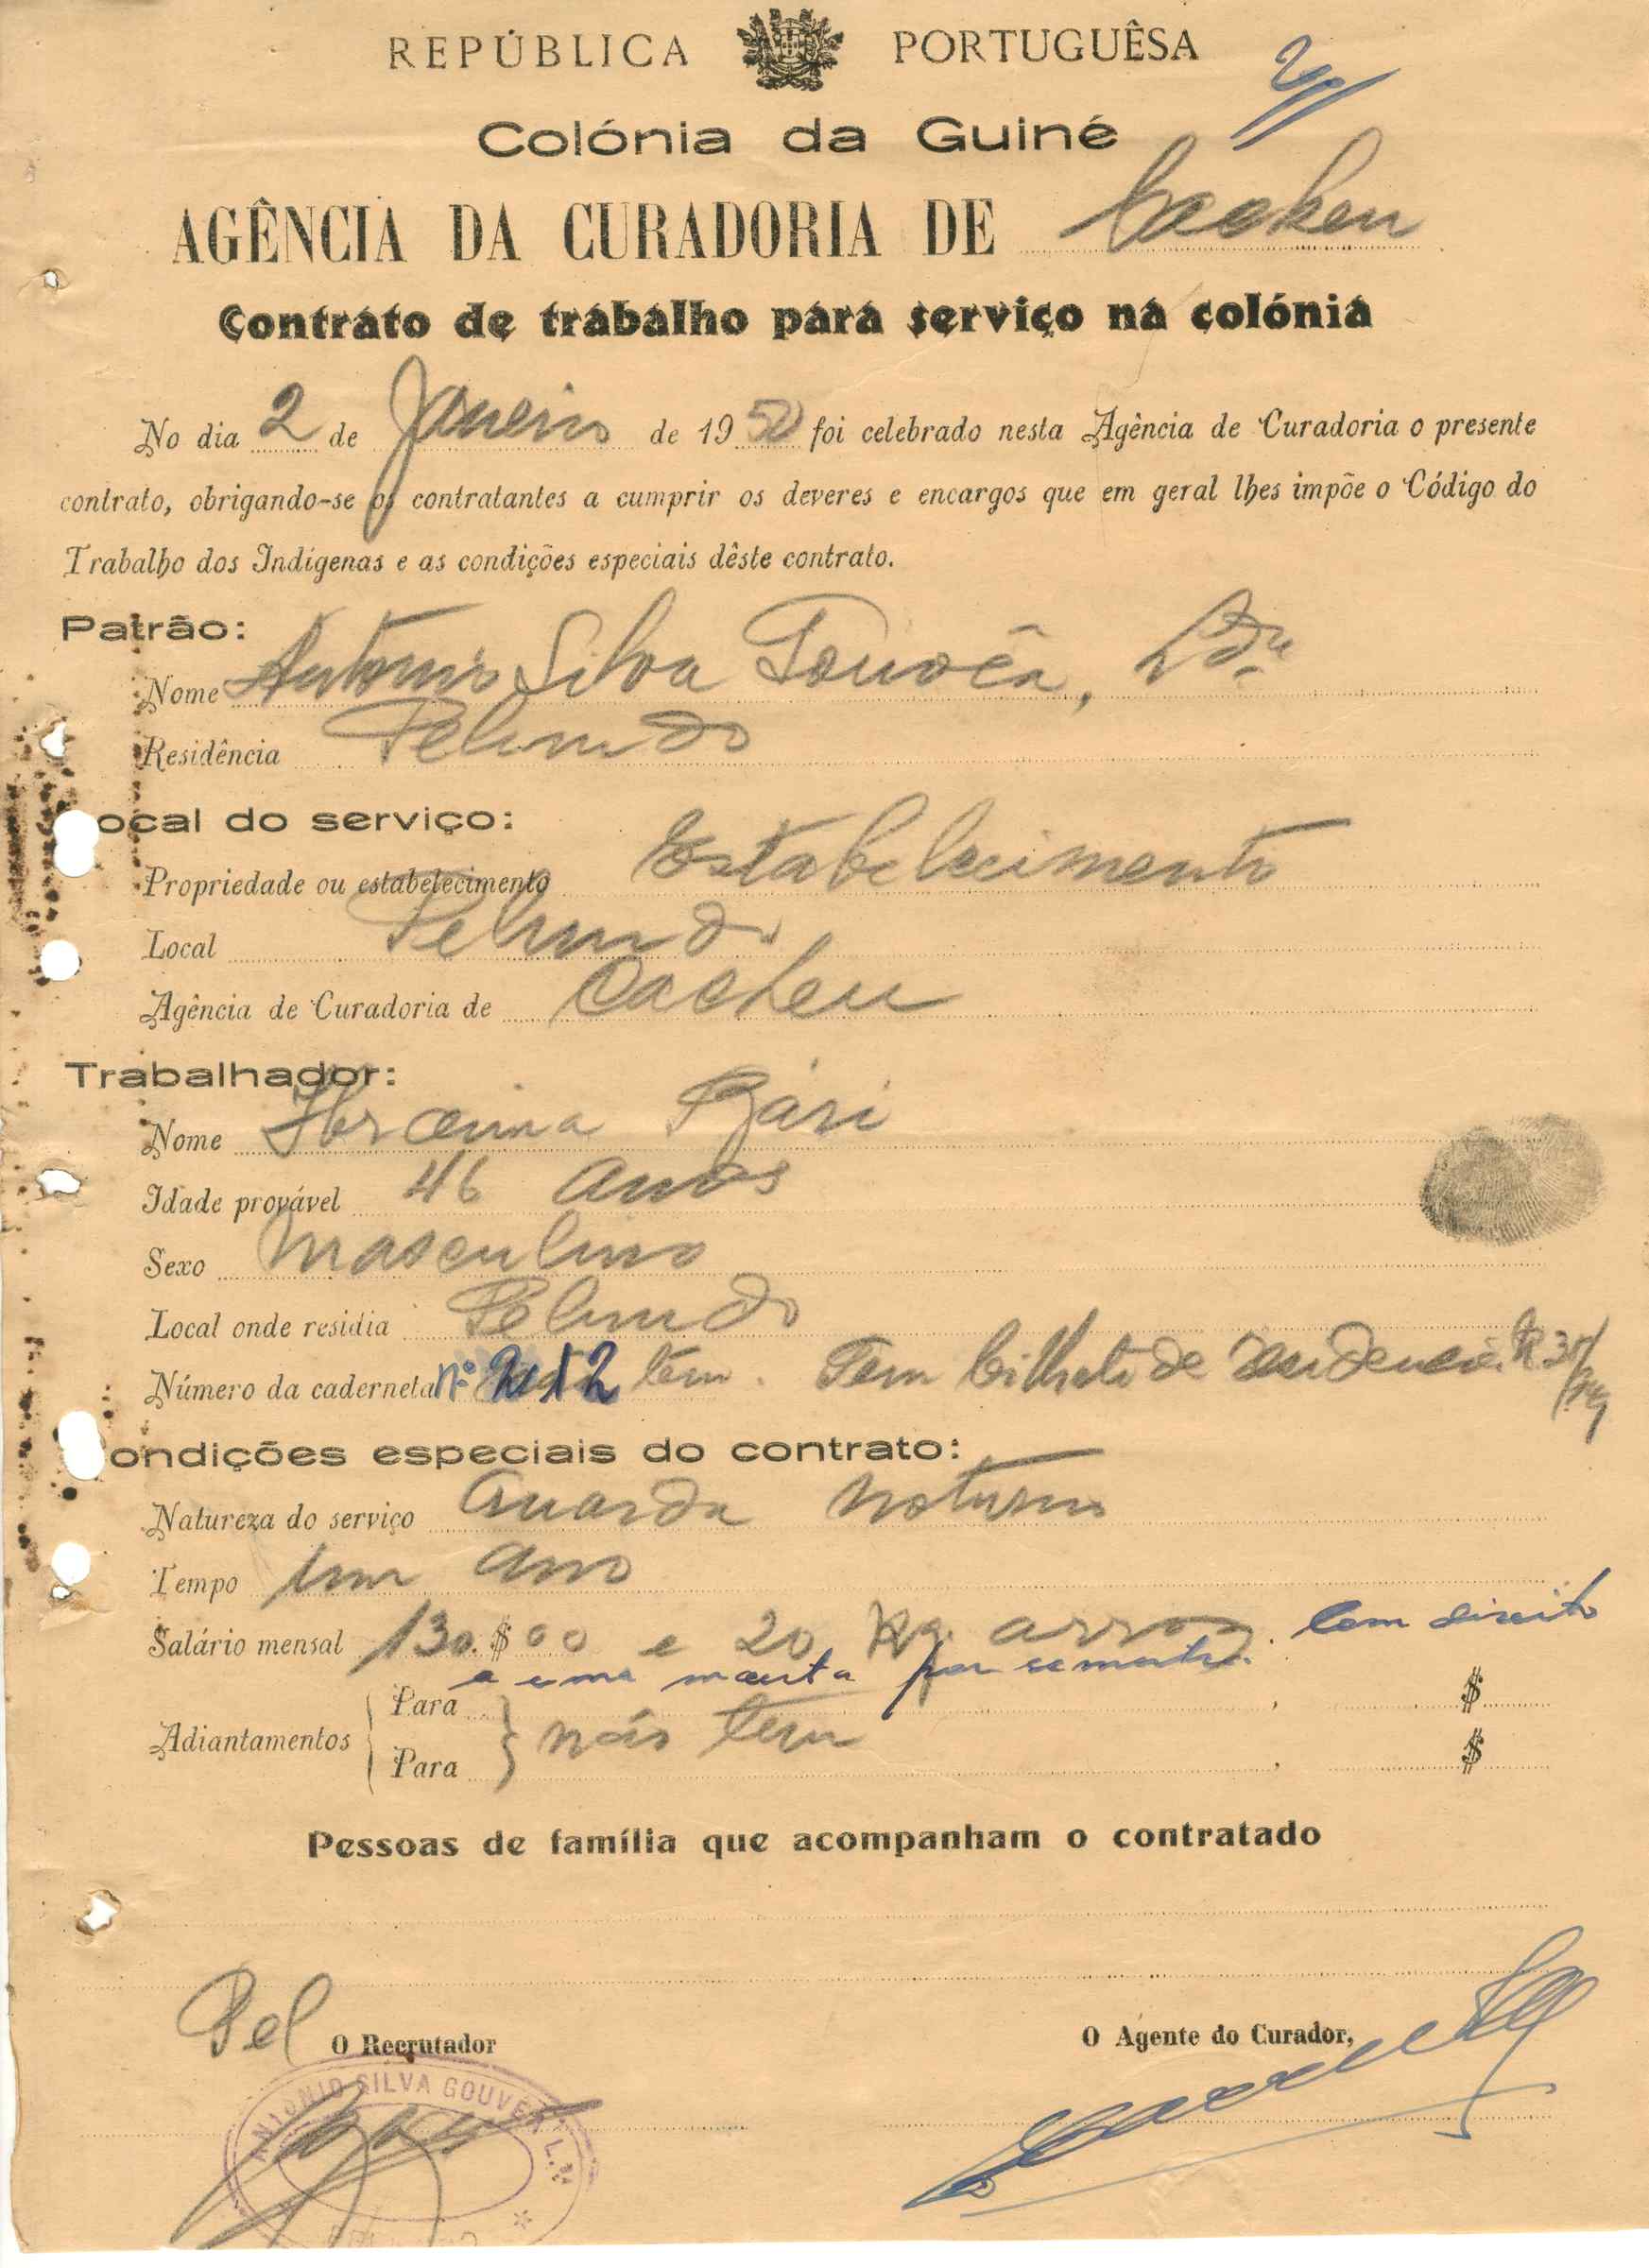 REPÚBLICA PORTUGUÊSA
Colónia da Guiné
AGÊNCIA DA CURADORIA DE Cacheu
Contrato de trabalho para serviço na colónia
No dia 2 de Janeiro de 1950 foi celebrado nesta Agência de Curadoria o presente
contrato, obrigando-se os contratantes a cumprir os deveres e encargos que em geral lhes impõe o Código do
Trabalho dos Indígenas e as condições especiais dêste contrato.
Patrão:
Nome António Silva Gouvêa, Lda
Residência Pelundo
ocal do serviço:
Propriedade ou estabelecimento Estabelecimento
Local Pelundo
Agência de Curadoria de Cacheu
Trabalhador:
Nome Ibraima Bári
Idade provável 46 anos
Sexo Masculino
Local onde residia Pelundo
Número da caderneta nº 2112 tem. Tem bilhete de residencia
ondições especiais do contrato:
Natureza do serviço Guarda noturno
Tempo um ano
Salário mensal 130.$00 e 20 kg. arroz. Com direito
a uma manta por semestre.
Adiantamentos { Para } não tem , $
Para , $
Pessoas de família que acompanham o contratado
Pel O Recrutador
O Agente do Curador,
ANTONIO SILVA GOUVEA L.DA